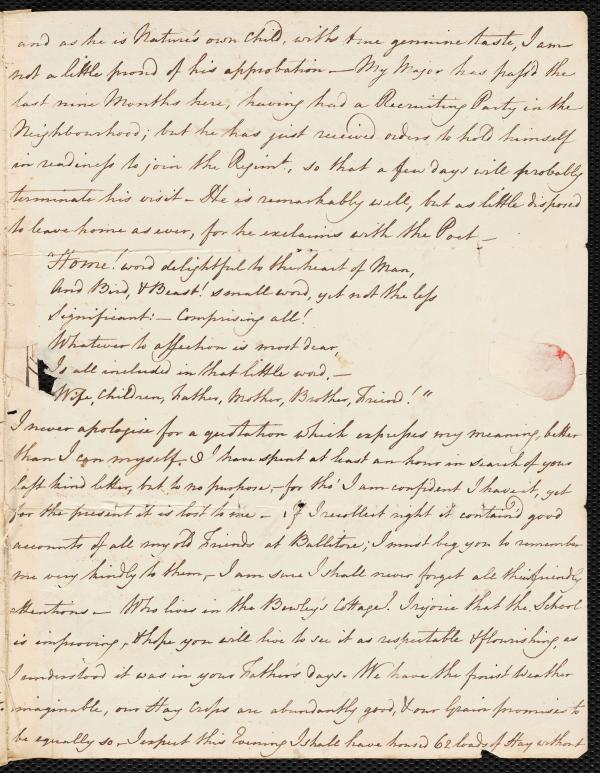 and as he is Nature's own Child, with true genuine taste, I am
not a little proud of his approbation — My Major has pass'd the
last nine Months here, having had a Recruiting Party in the
Neighbourhood; but he has just received orders to hold himself
in readiness to join the Regimt, so that a few days will probably
terminate his visit — He is remarkably well, but as little disposed
to leave home as ever, for he exclaims with the Poet —
"Home! word delightful to the heart of Man,
And Bird, & Beast! small word, yet not the less
Significant: — Comprising all!
Whatever to affection is most dear,
Is all included in that little word, —
Wife, Children, Father, Mother, Brother, Friend!"
I never apologise for a quotation which expresses my meaning, better
than I can myself. — I have spent at least an hour in search of your
last kind letter, but to no purpose, — for tho' I am confident I have it, yet
for the present it is lost to me — If I recollect right it contain'd good
accounts of all my old Friends at Ballitore; I must beg you to remember
me very kindly to them, — I am sure I shall never forget all their friendly
attentions — Who lives in the Bewley's Cottage? I rejoice that the School
is improving, & hope you will live to see it as respectable & flourishing, as
I understood it was in your Father's days. We have the finest weather
imaginable, our Hay Crops are abundantly good, & our Grain promises to
be equally so — I expect this Evening I shall have housed 62 loads of Hay without